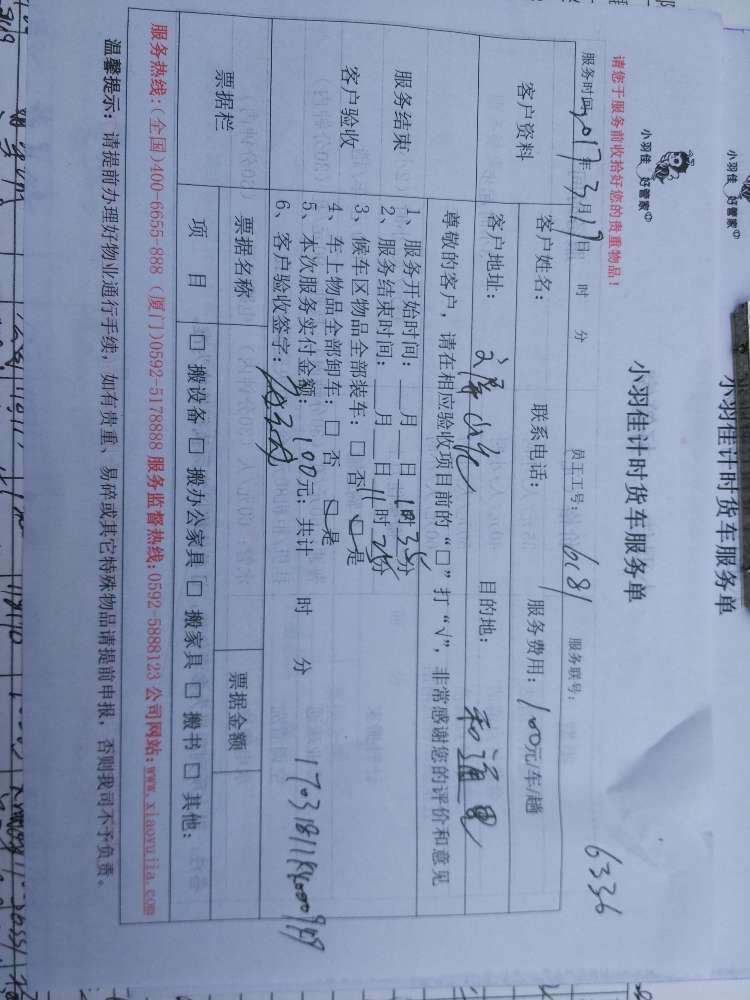 小羽佳 好管家
小羽佳计时货车服务单
小羽佳 好管家
小羽佳计时货车服务单
6336
请您于服务前收拾好您的贵重物品！
服务时间2017年3月19日 时 分 员工工号：6181 服务联号：
客户资料
客户姓名： 联系电话： 服务费用：100元/车/趟
客户地址： 目的地：和通里
服务结束
客户验收
尊敬的客户，请在相应验收项目前的“□”打“√”，非常感谢您的评价和意见
1、服务开始时间：__月__日 时35分
2、服务结束时间：__月__日11时25分
3、候车区物品全部装车：□ 否 □ 是
4、车上物品全部卸车：□ 否 □ 是
5、本次服务实付金额：100元；共计 时 分
6、客户验收签字：
票据栏
票据名称 票据金额
项 目 □ 搬设备 □ 搬办公家具 □ 搬家具 □ 搬书 □ 其他：
服务热线：(全国)400-6655-888 (厦门)0592-5178888 服务监督热线：0592-5888123 公司网站：www.xiaoyujia.com
温馨提示：请提前办理好物业通行手续，如有贵重、易碎或其它特殊物品请提前申报，否则我司不予负责。